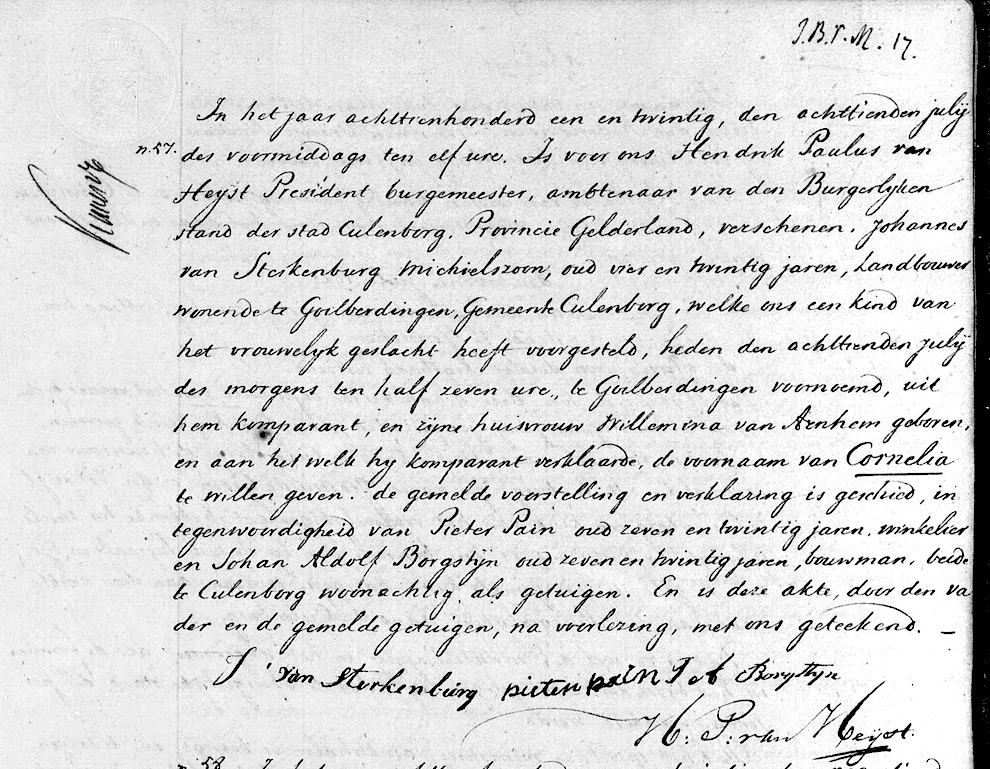 J.B.V.M. 17.
In het jaar achttienhonderd een en twintig, den achttienden julij
n. 57. des voormiddags ten elf ure. Is voor ons Hendrik Paulus van
Heyst President burgemeester, ambtenaar van den Burgerlyken
stand der stad Culenborg, Provincie Gelderland, verschenen. Johannes
van Sterkenburg Michielszoon, oud vier en twintig jaren, Landbouwer
wonende te Goilberdingen, Gemeente Culenborg, welke ons een kind van
het vrouwelyk geslacht heeft voorgesteld, heden den achttienden julij
des morgens ten half zeven ure, te Goilberdingen voornoemd, uit
hem komparant, en zyne huisvrouw Willemina van Arnhem geboren,
en aan het welk hy komparant verklaarde, de voornaam van Cornelia
te willen geven. de gemelde voorstelling en verklaring is geschied, in
tegenwoordigheid van Pieter Pain oud zeven en twintig jaren, winkelier
en Johan Aldolf Borgstijn oud zeven en twintig jaren, bouwman, beide
te Culenborg woonachtig als getuigen. En is deze akte, door den va
der en de gemelde getuigen, na voorlezing, met ons geteekend. –
J. van Sterkenburg pieter pain J A Borgstyn
H. P. van Heyst.
n. 58